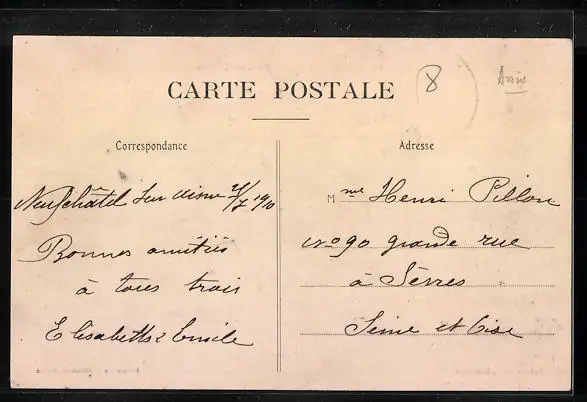 CARTE POSTALE
8
Aisne
Correspondance
Neufchâtel sur aisne
Bonnes amitiés
à tous trois
Elisabeth & Emile
Adresse
Mme Henri Pillon
no 90 grande rue
à Sèvres
Seine et Oise